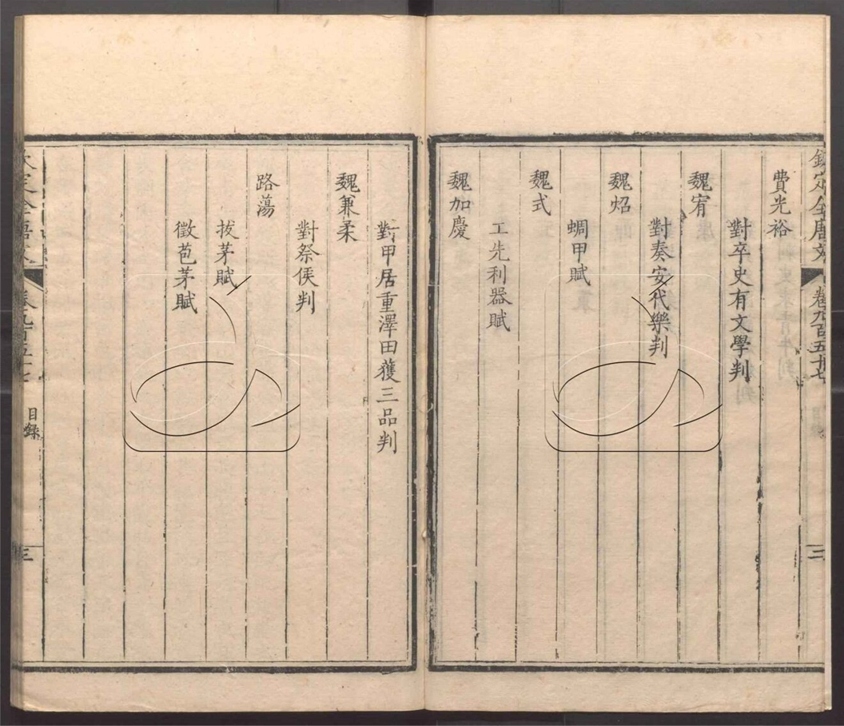 欽定全唐文 卷九百五十七 三
費光裕
對卒史有文學判
魏宥
對奏安代樂判
魏炤
蜩甲賦
魏式
工先利器賦
魏加慶
對甲居重澤田獲三品判
魏兼柔
對祭侯判
路蕩
拔茅賦
徵苞茅賦
卷九百五十七 目錄 三